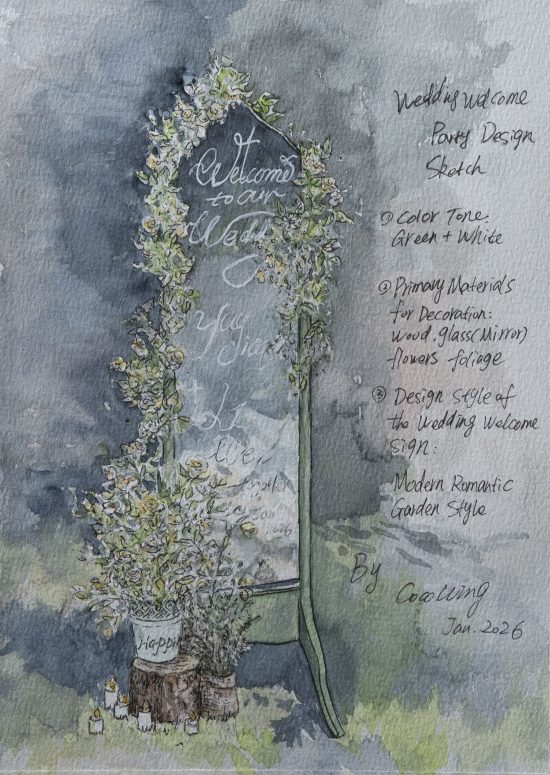 Welcome
to our
Wedd
Happi
Wedding Welcome
Party Design
Sketch
① Color Tone:
Green + White
② Primary Materials
for Decoration:
Wood, glass (Mirror)
flowers foliage
③ Design Style of
the Wedding Welcome
Sign:
Modern Romantic
Garden Style
By
Jan. 2026